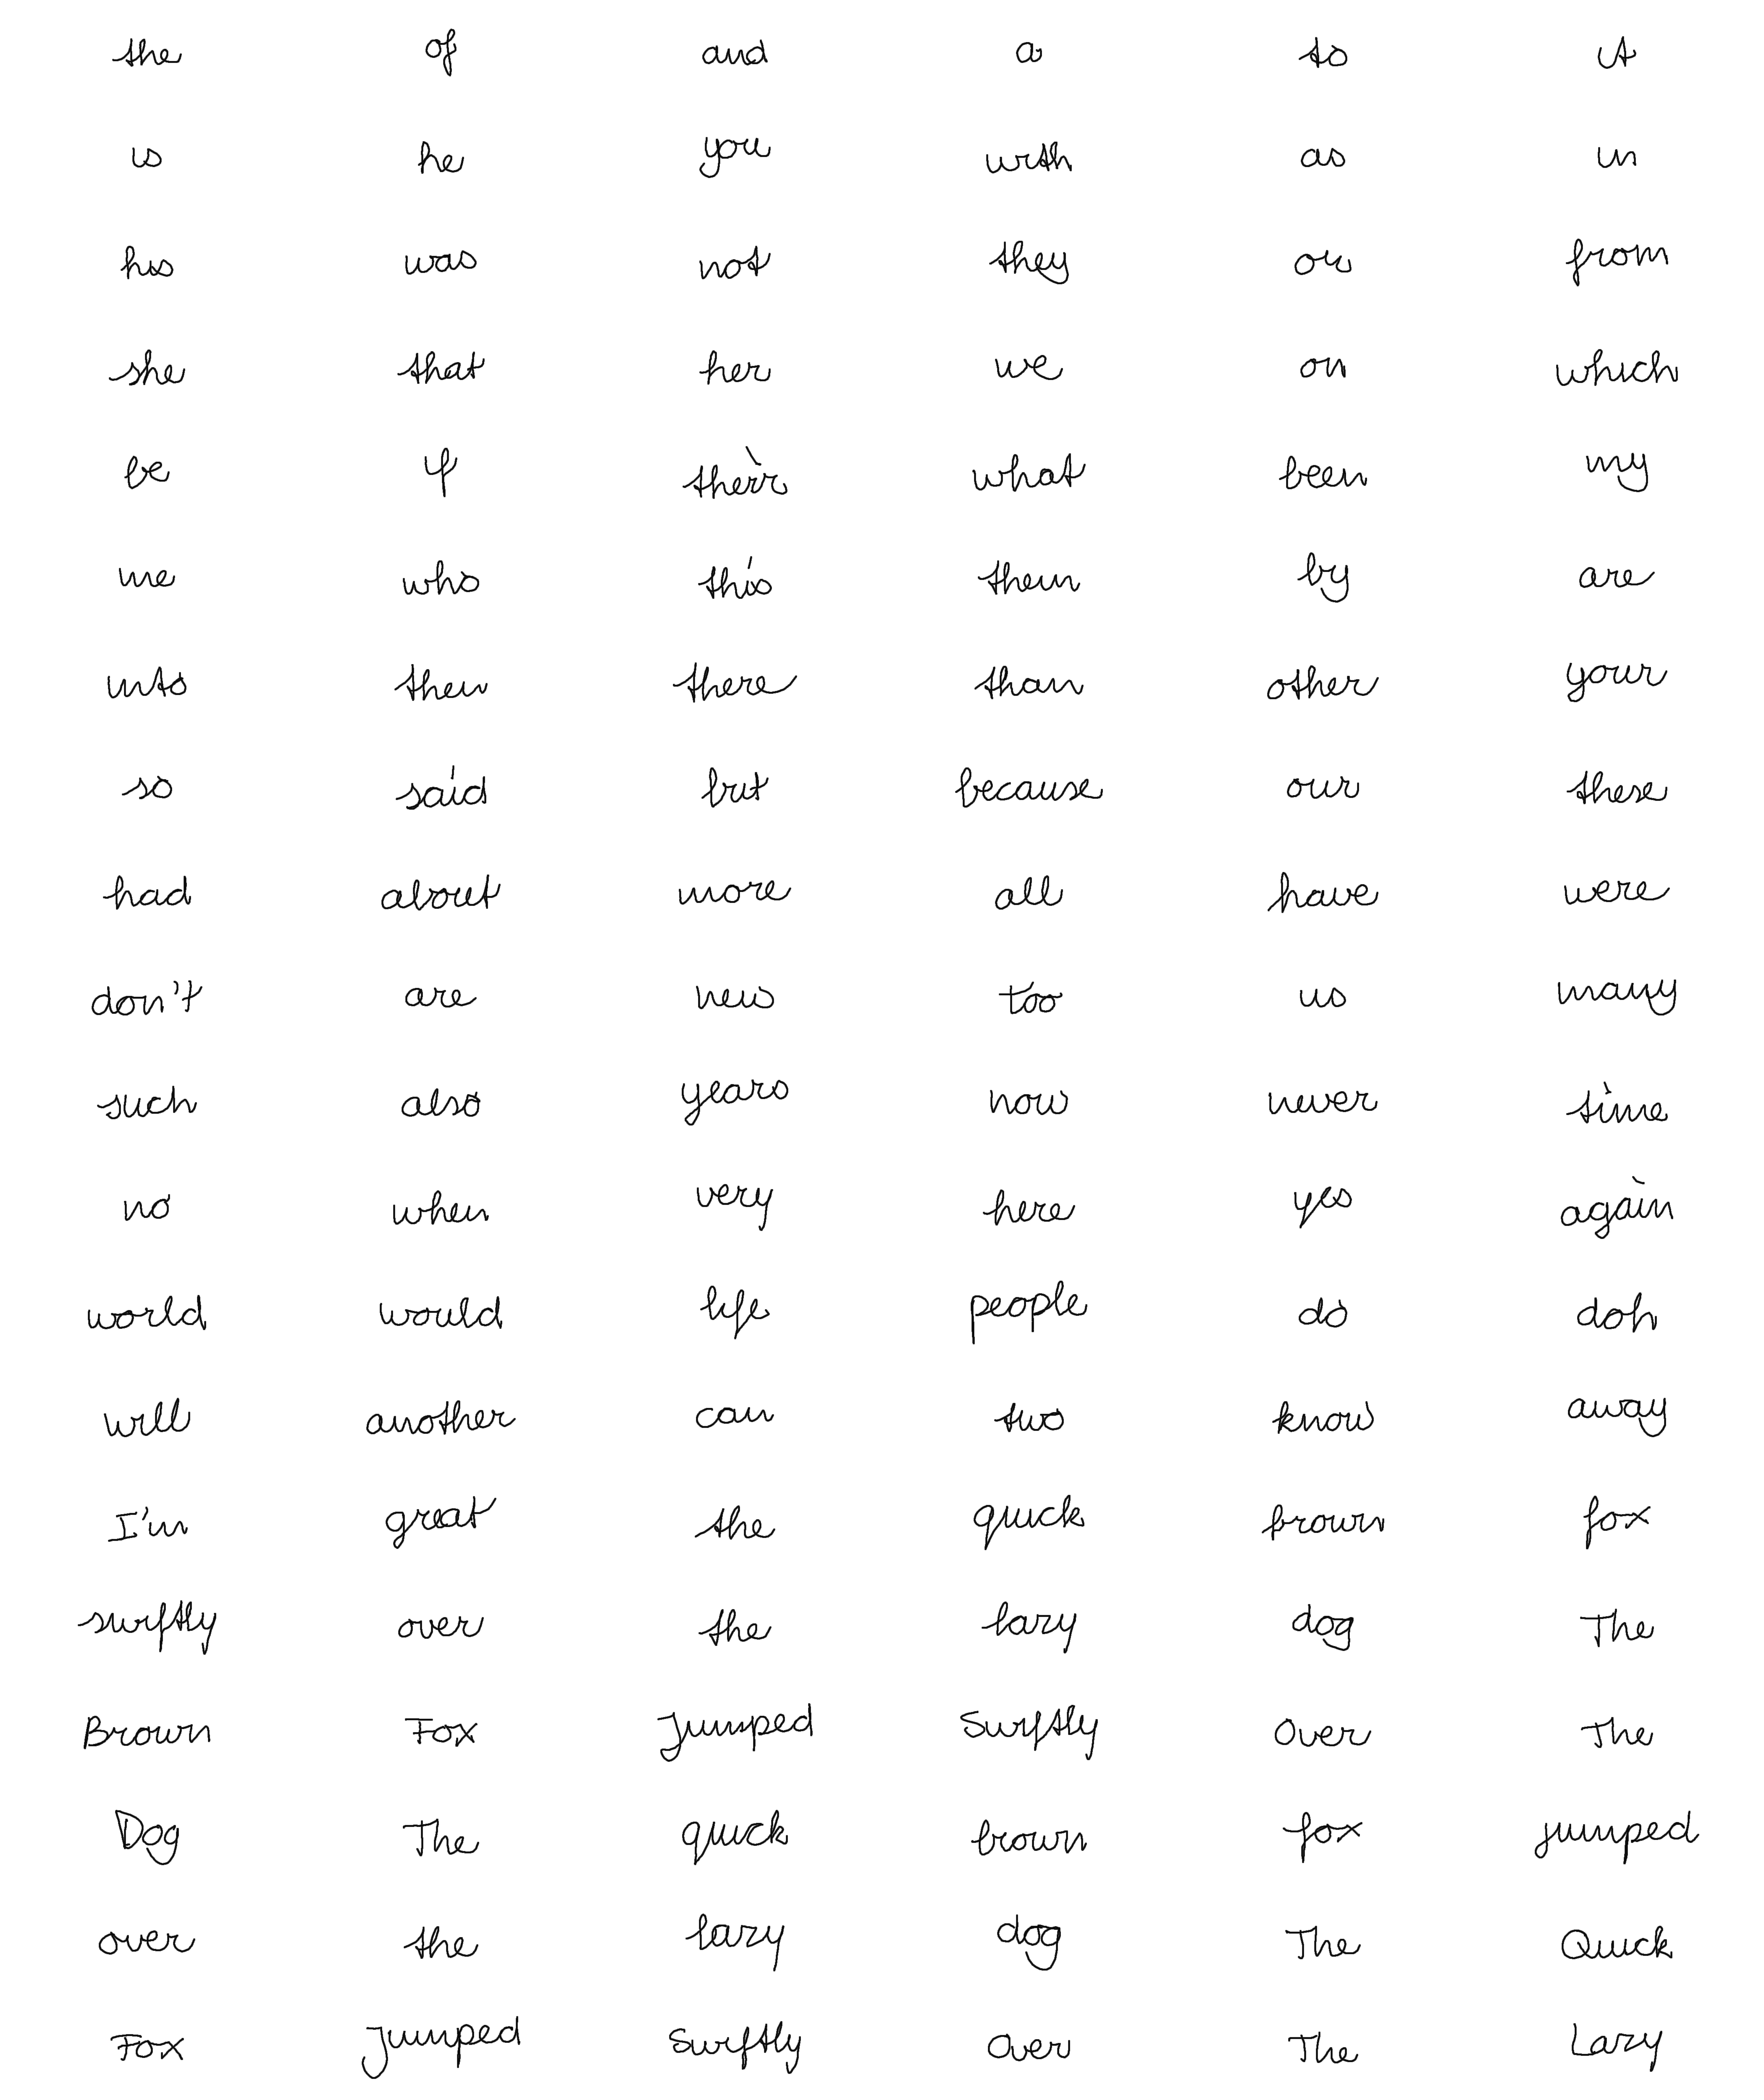 the of and a to it
is he you with as in
his was not they or from
she that her we on which
be if their what been my
me who this them by are
into then there than other your
so said but because our these
had about more all have were
don't are new too us many
such also years now never time
no when very here yes again
world would life people do doh
will another can two know away
I'm great the quick brown fox
swiftly over the lazy dog The
Brown Fox Jumped Swiftly Over The
Dog The quick brown fox jumped
over the lazy dog The Quick
Fox Jumped Swiftly Over The Lazy